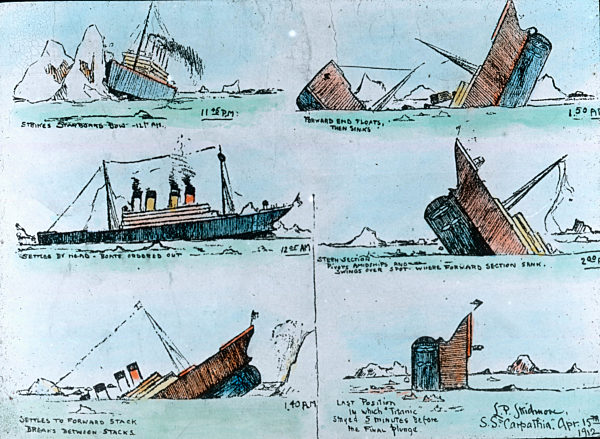 11 45 P.M.
STRIKES STARBOARD BOW - 12ft Aft.
12 05 AM
SETTLES BY HEAD - BOATS ORDERED OUT
1.40 A.M
SETTLES TO FORWARD STACK
BREAKS BETWEEN STACKS
1.50 AM
FORWARD END FLOATS,
THEN SINKS
STERN SECTION
PIVOTS AMIDSHIPS AND
SWINGS OVER SPOT WHERE FORWARD SECTION SANK.
LAST POSITION
IN WHICH "TITANIC"
STAYED 5 MINUTES BEFORE
THE FINAL PLUNGE
L.P. Skidmore.
S.S. Carpathia. Apr. 15th
1912